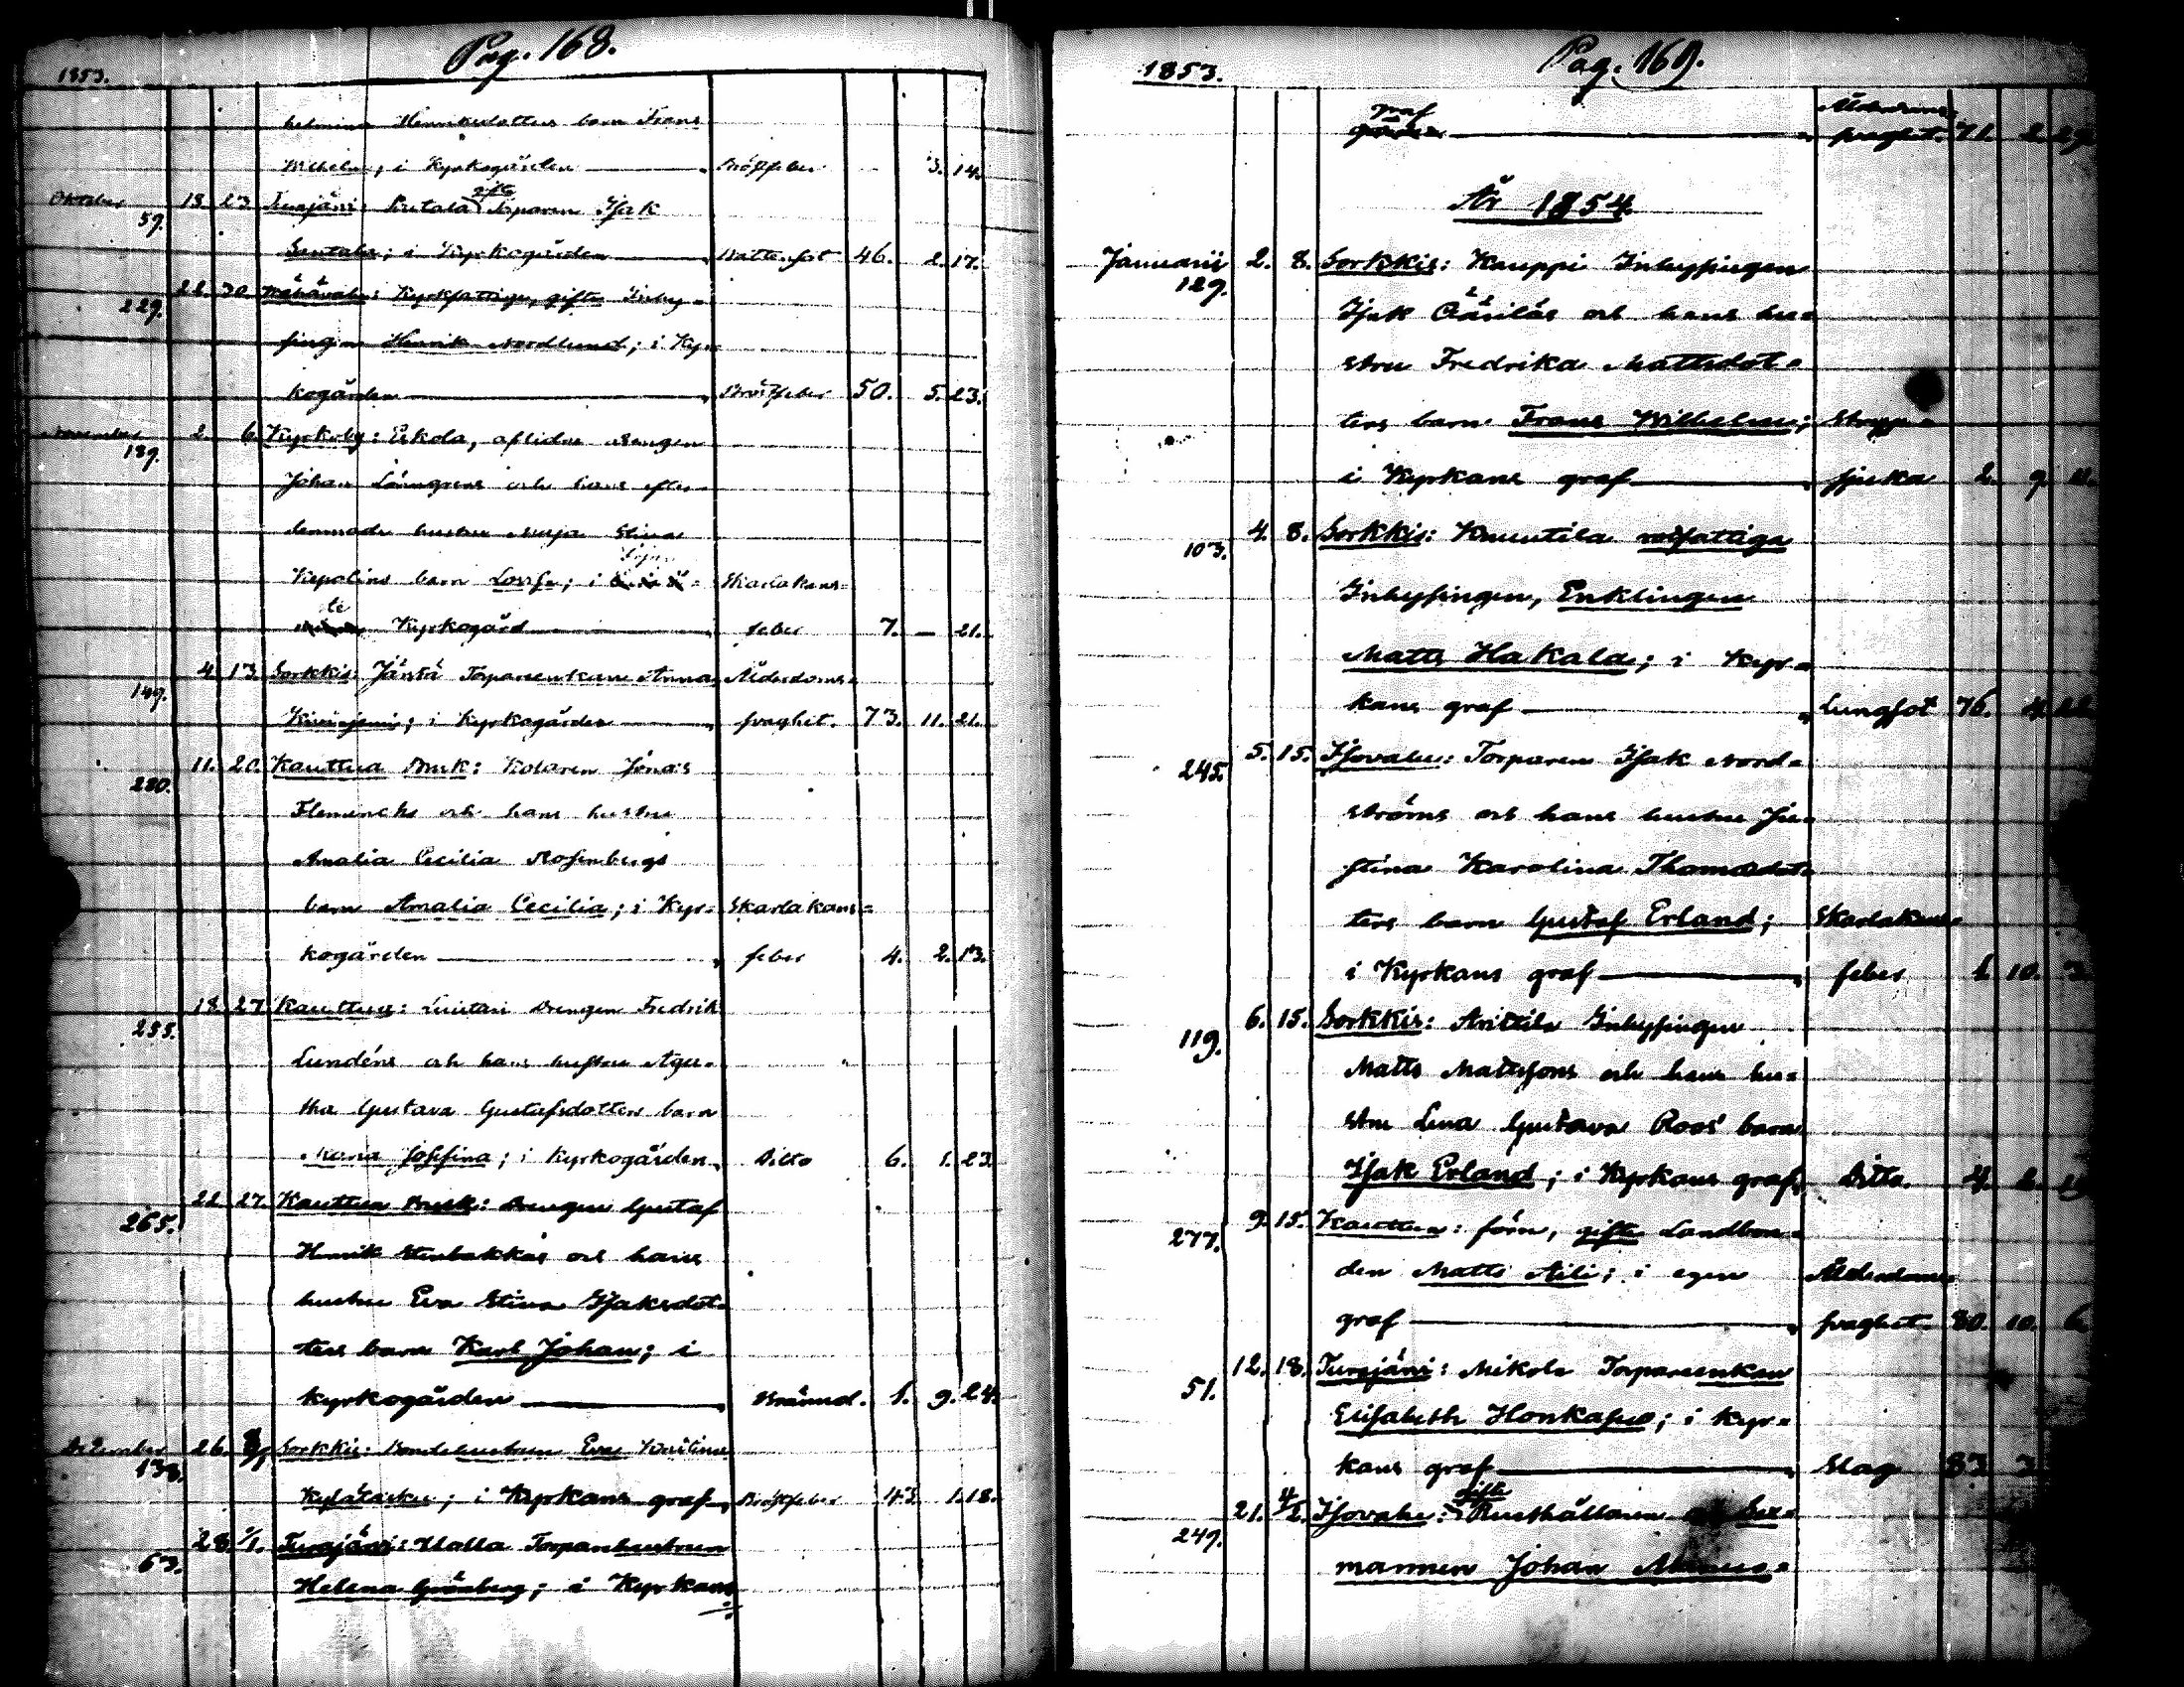 Pag. 168.
1853.
helmina Henriksdotters barn Frans
Wilhelm; i Kyrkogården Bröstfeber 3. 14.
Oktober 59. 18. 23. Turajärvi: gifte Torparen Isak
; i Kyrkogården Vattensot 46. 2. 17.
229. 22. 30. Kyrkfattige, gifte Inhy=
singen Henrik Nordlund; i Kyr=
kogården Bröstfeber 50. 5. 23.
November 189. 2. 6. Kyrkoby: Eskola, aflidne drengen
Johan Lönngrens och hans efter=
lemnade hustru Maja Stina
barn Lovisa; i Skarlakans=
Kyrkogård feber 7. — 21.
149. 4. 13. Sorkkis: Jänsä Torpareenkan Anna Ålderdoms=
; i Kyrkogården svaghet. 73. 11. 21.
280. 11. 20. Kauttua Bruk: Kolaren Jonas
Flemincks och hans hustru
Amalia Cecilia Rosenbergs
barn Amalia Cecilia; i Kyr= Skarlakans=
kogården feber 4. 2. 13.
255. 18. 27. Kauttua: Luistari Drengen Fredrik
Lundéns och hans hustru Aga=
tha Gustava Gustafsdotters barn
Maria Josefina; i Kyrkogården Ditto 6. 1. 23.
265. 22. 27. Kauttua Bruk: Drengen Gustaf
Henrik Stenbakkas och hans
hustru Eva Stina Isaksdot=
ters barn Karl Johan; i
kyrkogården Bränd. 1. 9. 24.
December 138. 26. Sorkkis: Bondehustrun Eva Kristina
; i Kyrkans graf Bröstfeber 43. 1. 18.
63. 28. 1/1. Turajärvi: Ualla Torparehustrun
Helena Grönberg; i Kyrkans
Pag. 169.
1853.
graf Ålderdoms=
svaghet. 71. 2.
År 1854.
Januarii 129. 2. 8. Sorkkis: Kauppi Inhysingen
Isak och hans hu=
stru Fredrika Mattsdot=
ters barn Frans Wilhelm; Stryp=
i Kyrkans graf sjuka 2. 9.
103. 4. 8. Sorkkis: Knuutila rotfattiga
Inhysingen, Enklingen
Matts Hakala; i Kyr=
kans graf Lungsot 76.
245. 5. 15. Isovahe: Torparen Isak Nord=
ströms och hans hustru Ju=
stina Karolina Thomasdot=
ters barn Gustaf Erland; Skarlakans=
i Kyrkans graf feber 1. 10.
119. 6. 15. Sorkkis: Anttila Inhysingen
Matts Mattssons och hans hu=
stru Lena Gustava Roos' barn
Isak Erland; i Kyrkans graf Ditto. 4. 2.
277. 9. 15. Kauttua: förn, gifte Landbon=
den Matts Aili; i egen Ålderdoms=
graf svaghet. 80. 10. 6.
51. 12. 18. Turajärvi: Mikola Torpareenkan
Elisabeth Honkasuo; i Kyr=
kans graf Slag 83. 3
249. 21. 4/2. Isovahe: gifte Rusthållaren Sex=
mannen Johan